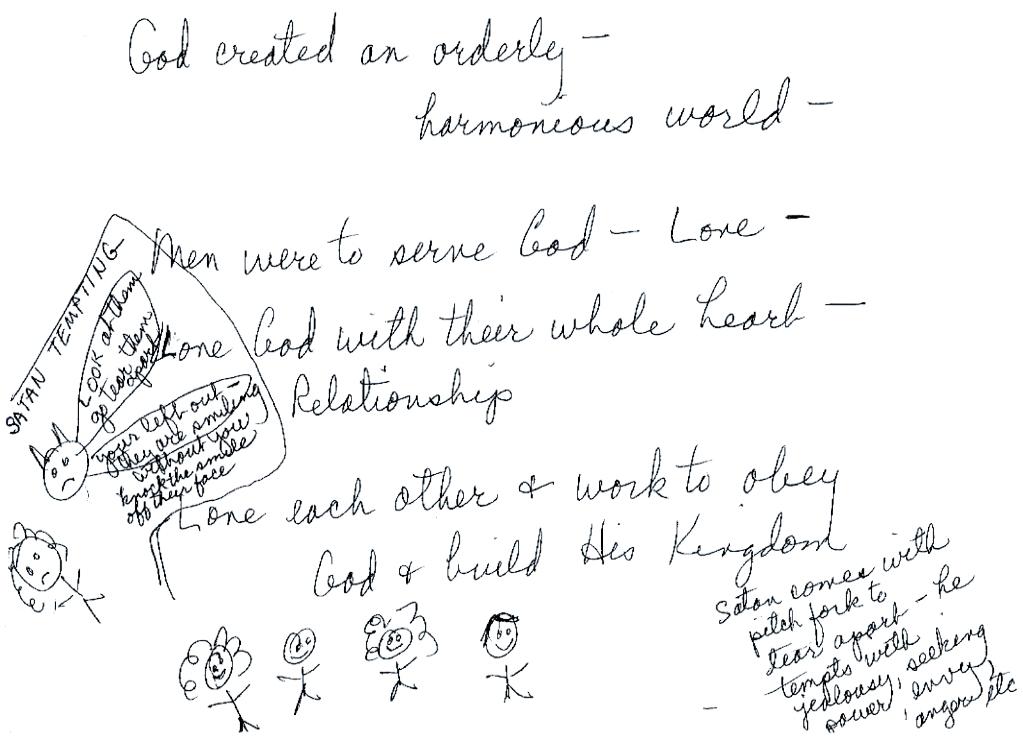 God created an orderly –
harmonious world –
Men were to serve God – Love –
Love God with their whole heart –
Relationships
Love each other & work to obey
God & build His Kingdom
SATAN TEMPTING
Look at them
go tear them
apart
your left out –
they are smiling
without you
knock the smile
off their face
Satan comes with
pitch fork to
tear apart – he
tempts with
jealousy, seeking
power, envy,
anger etc